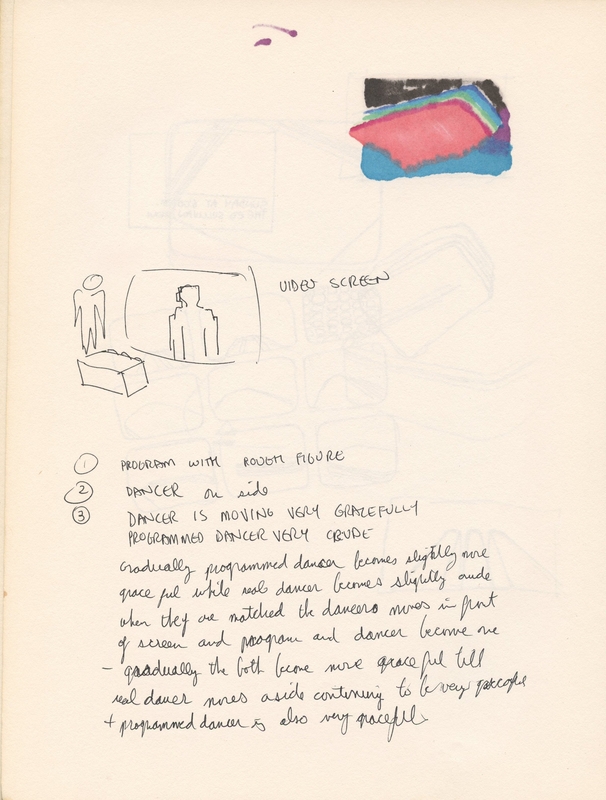 VIDEO SCREEN
1 PROGRAM WITH ROUGH FIGURE
2 DANCER on side
3 DANCER IS MOVING VERY GRACEFULLY
PROGRAMMED DANCER VERY CRUDE
Gradually programmed dancer becomes slightly more
graceful while real dancer becomes slightly crude
when they are matched the dancers moves in front
of screen and program and dancer become one
- gradually the both become more graceful till
real dancer moves aside continuing to be very graceful
+ programmed dancer is also very graceful